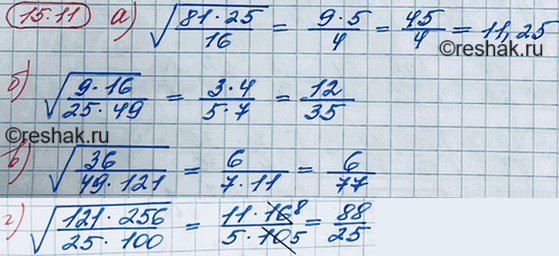 15.11 а) √(81·25/16) = 9·5/4 = 45/4 = 11,25
©reshak.ru
б) √(9·16/25·49) = 3·4/5·7 = 12/35
©reshak.ru
в) √(36/49·121) = 6/7·11 = 6/77
г) √(121·256/25·100) = 11·16 8/5·10 5 = 88/25